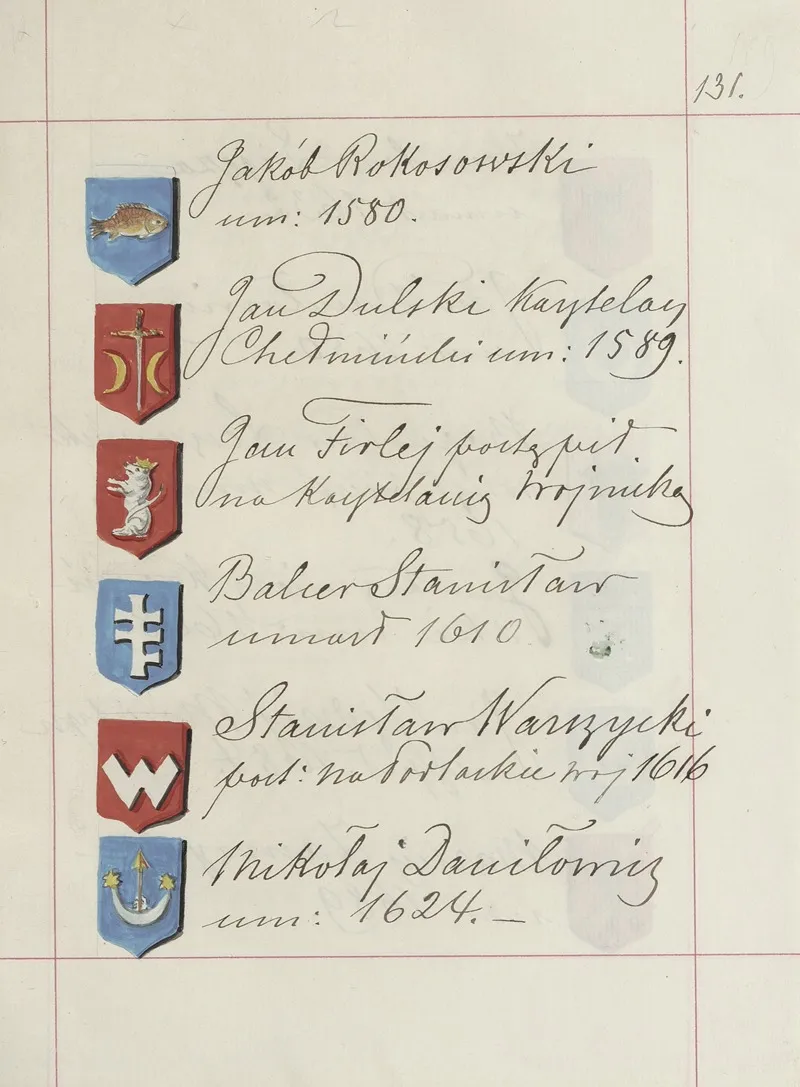 131.
Jakób Rokosowski
um: 1580.
Jan Dulski Kasztelan
Chełmiński um: 1589.
Jan Firlej postąpił
na Kasztelanią Wojnicką
Stanisław
umarł 1610
Stanisław Warszycki
post: na Podlaskie woj 1616
Mikołaj Daniłowicz
um: 1624. —